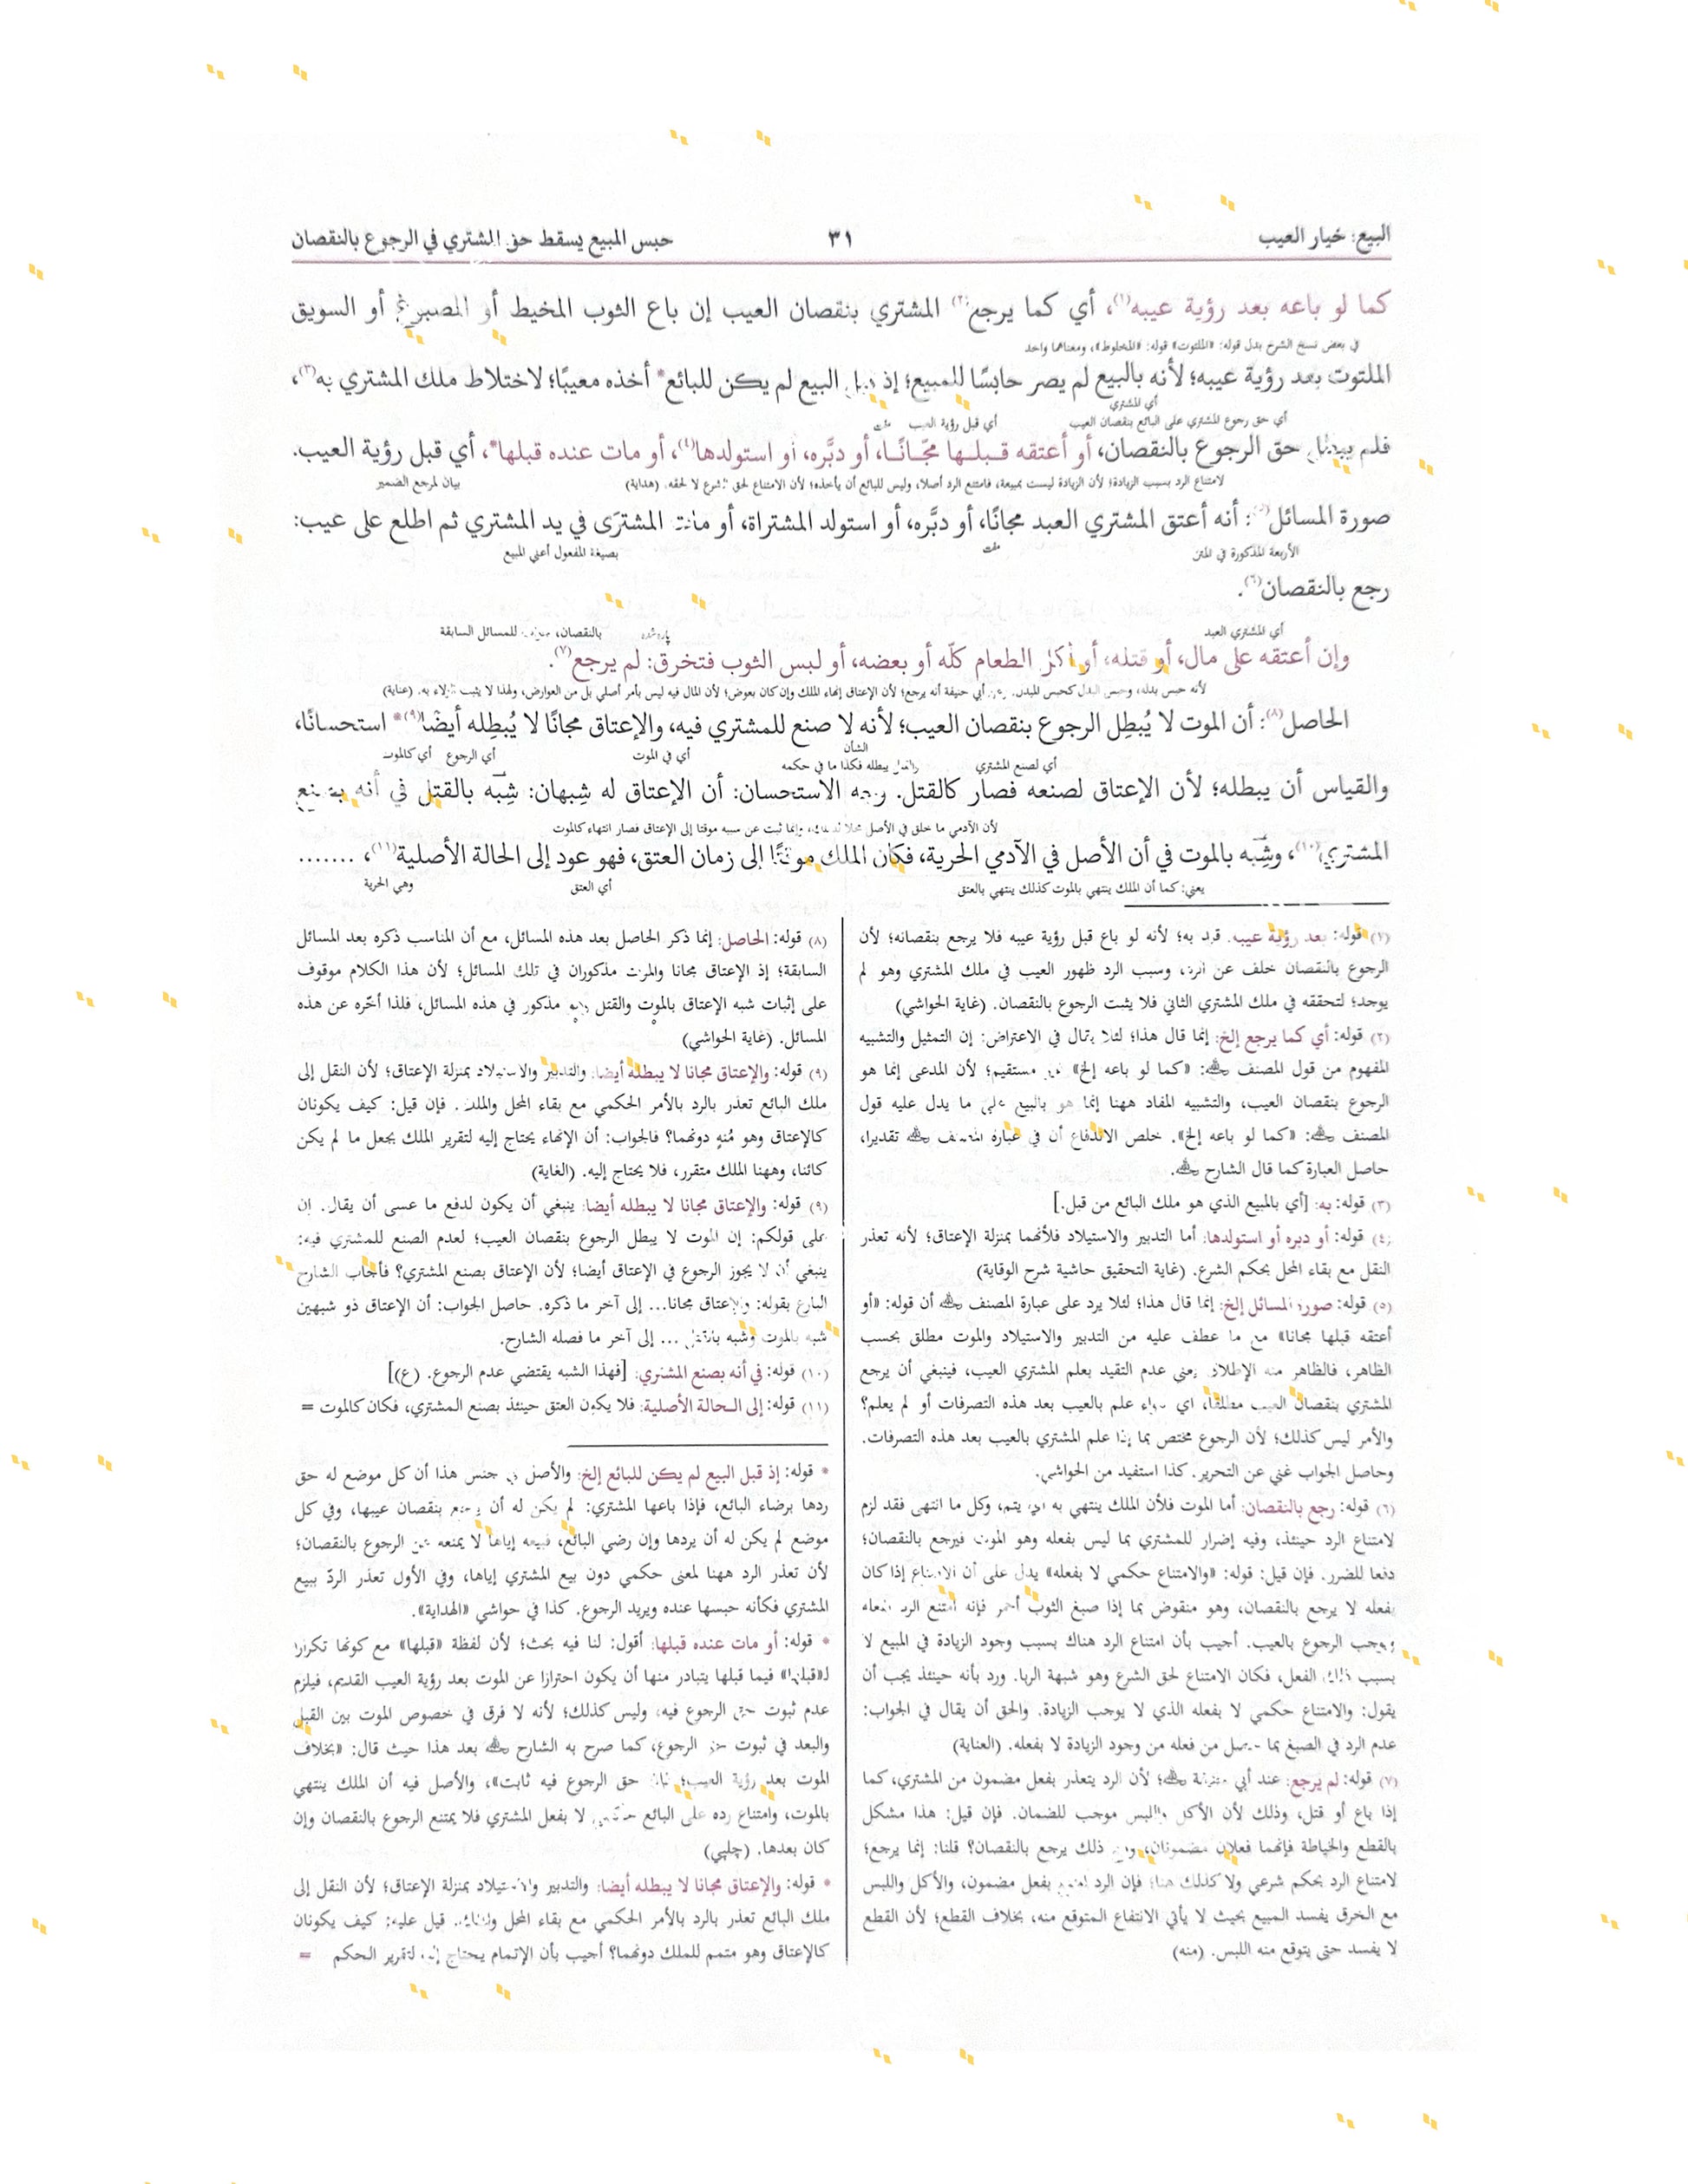 البيع: خيار العيب
٣١
حبس المبيع يسقط حق المشتري في الرجوع بالنقصان
كما لو باعه بعد رؤية عيبه(١)، أي كما يرجع(٢) المشتري بنقصان العيب إن باع الثوب المخيط أو المصبوغ أو السويق
في بعض نسخ الشرح بدل قوله: «الملتوت» قوله: «المخلوط»، ومعناهما واحد
الملتوت بعد رؤية عيبه؛ لأنه بالبيع لم يصر حابسًا للمبيع؛ إذ قبل البيع لم يكن للبائع* أخذه معيبًا؛ لاختلاط ملك المشتري به(٣)،
أي المشتري
أي حق رجوع المشتري على البائع بنقصان العيب أي قبل رؤية العيب
فلم يبطل حق الرجوع بالنقصان، أو أعتقه قبلها مجّانًا، أو دبَّره، أو استولدها(٤)، أو مات عنده قبلها*، أي قبل رؤية العيب.
لامتناع الرد بسبب الزيادة؛ لأن الزيادة ليست بمبيعة، فامتنع الرد أصلا، وليس للبائع أن يأخذه؛ لأن الامتناع لحق الشرع لا لحقه. (هداية) بيان لمرجع الضمير
صورة المسائل(٥): أنه أعتق المشتري العبد مجانًا، أو دبَّره، أو استولد المشتراة، أو مات المشترَى في يد المشتري ثم اطلع على عيب:
الأربعة المذكورة في المتن بصيغة المفعول أعني المبيع
رجع بالنقصان(٦).
أي المشتري العبد پاره شده بالنقصان، للمسائل السابقة
وإن أعتقه على مال، أو قتله، أو أكل الطعام كلّه أو بعضه، أو لبس الثوب فتخرق: لم يرجع(٧).
لأنه حبس بدله، وحبس البدل كحبس المبدل. وعن أبي حنيفة أنه يرجع؛ لأن الإعتاق إنهاء الملك وإن كان بعوض؛ لأن المال فيه ليس بأمر أصلي بل من العوارض، ولهذا لا يثبت الولاء به. (عناية)
الحاصل(٨): أن الموت لا يُبطِل الرجوع بنقصان العيب؛ لأنه لا صنع للمشتري فيه، والإعتاق مجانًا لا يُبطِله أيضًا(٩)* استحسانًا،
الشأن أي في الموت أي الرجوع أي كالموت
أي لصنع المشتري والقتل يبطله فكذا ما في حكمه
والقياس أن يبطله؛ لأن الإعتاق لصنعه فصار كالقتل. وجه الاستحسان: أن الإعتاق له شِبهان: شِبْه بالقتل في أنه بصنع
لأن الآدمي ما خلق في الأصل محلا للملك، وإنما ثبت عن سببه موقتا إلى الإعتاق فصار انتهاء كالموت
المشتري(١٠)، وشِبْه بالموت في أن الأصل في الآدمي الحرية، فكان الملك موقتًا إلى زمان العتق، فهو عود إلى الحالة الأصلية(١١)، .......
يعني: كما أن الملك ينتهي بالموت كذلك ينتهي بالعتق أي العتق وهي الحرية
(١) قوله: بعد رؤية عيبه. قيد به؛ لأنه لو باع قبل رؤية عيبه فلا يرجع بنقصانه؛ لأن
الرجوع بالنقصان خلف عن الرد، وسبب الرد ظهور العيب في ملك المشتري وهو لم
يوجد؛ لتحققه في ملك المشتري الثاني فلا يثبت الرجوع بالنقصان. (غاية الحواشي)
(٢) قوله: أي كما يرجع إلخ: إنما قال هذا؛ لئلا يقال في الاعتراض: إن التمثيل والتشبيه
المفهوم من قول المصنف ﵀: «كما لو باعه إلخ» غير مستقيم؛ لأن المدعى إنما هو
الرجوع بنقصان العيب، والتشبيه المفاد ههنا إنما هو بالبيع على ما يدل عليه قول
المصنف ﵀: «كما لو باعه إلخ». خلص الاندفاع أن في عبارة المصنف ﵀ تقديرا،
حاصل العبارة كما قال الشارح ﵀.
(٣) قوله: به: [أي بالمبيع الذي هو ملك البائع من قبل.]
(٤) قوله: أو دبره أو استولدها: أما التدبير والاستيلاد فلأنهما بمنزلة الإعتاق؛ لأنه تعذر
النقل مع بقاء المحل بحكم الشرع. (غاية التحقيق حاشية شرح الوقاية)
(٥) قوله: صورة المسائل إلخ: إنما قال هذا؛ لئلا يرد على عبارة المصنف ﵀ أن قوله: «أو
أعتقه قبلها مجانا» مع ما عطف عليه من التدبير والاستيلاد والموت مطلق بحسب
الظاهر، فالظاهر منه الإطلاق يعني عدم التقيد بعلم المشتري العيب، فينبغي أن يرجع
المشتري بنقصان العيب مطلقًا، أي سواء علم بالعيب بعد هذه التصرفات أو لم يعلم؟
والأمر ليس كذلك؛ لأن الرجوع مختص بما إذا علم المشتري بالعيب بعد هذه التصرفات.
وحاصل الجواب غني عن التحرير. كذا استفيد من الحواشي.
(٦) قوله: رجع بالنقصان: أما الموت فلأن الملك ينتهي به أي يتم، وكل ما انتهى فقد لزم
لامتناع الرد حينئذ، وفيه إضرار للمشتري بما ليس بفعله وهو الموت فيرجع بالنقصان؛
دفعا للضرر. فإن قيل: قوله: «والامتناع حكمي لا بفعله» يدل على أن الامتناع إذا كان
بفعله لا يرجع بالنقصان، وهو منقوض بما إذا صبغ الثوب أحمر فإنه امتنع الرد بفعله
ويوجب الرجوع بالعيب. أجيب بأن امتناع الرد هناك بسبب وجود الزيادة في المبيع لا
بسبب ذلك الفعل، فكان الامتناع لحق الشرع وهو شبهة الربا. ورد بأنه حينئذ يجب أن
يقول: والامتناع حكمي لا بفعله الذي لا يوجب الزيادة. والحق أن يقال في الجواب:
عدم الرد في الصبغ بما حصل من فعله من وجود الزيادة لا بفعله. (العناية)
(٧) قوله: لم يرجع: عند أبي حنيفة ﵀؛ لأن الرد يتعذر بفعل مضمون من المشتري، كما
إذا باع أو قتل، وذلك لأن الأكل واللبس موجب للضمان. فإن قيل: هذا مشكل
بالقطع والخياطة فإنهما فعلان مضمونان، ومع ذلك يرجع بالنقصان؟ قلنا: إنما يرجع؛
لامتناع الرد بحكم شرعي ولا كذلك هنا؛ فإن الرد امتنع بفعل مضمون، والأكل واللبس
مع الخرق يفسد المبيع بحيث لا يأتي الانتفاع المتوقع منه، بخلاف القطع؛ لأن القطع
لا يفسد حتى يتوقع منه اللبس. (منه)
(٨) قوله: الحاصل: إنما ذكر الحاصل بعد هذه المسائل، مع أن المناسب ذكره بعد المسائل
السابقة؛ إذ الإعتاق مجانا والموت مذكوران في تلك المسائل؛ لأن هذا الكلام موقوف
على إثبات شبه الإعتاق بالموت والقتل وهو مذكور في هذه المسائل، فلذا أخّره عن هذه
المسائل. (غاية الحواشي)
(٩) قوله: والإعتاق مجانا لا يبطله أيضا: والتدبير والاستيلاد بمنزلة الإعتاق؛ لأن النقل إلى
ملك البائع تعذر بالرد بالأمر الحكمي مع بقاء المحل والملك. فإن قيل: كيف يكونان
كالإعتاق وهو مُنهٍ دونهما؟ فالجواب: أن الإنهاء يحتاج إليه لتقرير الملك بجعل ما لم يكن
كائنا، وههنا الملك متقرر، فلا يحتاج إليه. (الغاية)
(٩) قوله: والإعتاق مجانا لا يبطله أيضا: ينبغي أن يكون لدفع ما عسى أن يقال. إن
على قولكم: إن الموت لا يبطل الرجوع بنقصان العيب؛ لعدم الصنع للمشتري فيه:
ينبغي أن لا يجوز الرجوع في الإعتاق أيضا؛ لأن الإعتاق بصنع المشتري؟ فأجاب الشارح
البارع بقوله: والإعتاق مجانا... إلى آخر ما ذكره. حاصل الجواب: أن الإعتاق ذو شبهين
شبه بالموت وشبه بالقتل ... إلى آخر ما فصله الشارح.
(١٠) قوله: في أنه بصنع المشتري: [فهذا الشبه يقتضي عدم الرجوع. (ع)]
(١١) قوله: إلى الحالة الأصلية: فلا يكون العتق حينئذ بصنع المشتري، فكان كالموت =
* قوله: إذ قبل البيع لم يكن للبائع إلخ: والأصل في جنس هذا أن كل موضع له حق
ردها برضاء البائع، فإذا باعها المشتري: لم يكن له أن يرجع بنقصان عيبها، وفي كل
موضع لم يكن له أن يردها وإن رضي البائع، فبيعه إياها لا يمنعه عن الرجوع بالنقصان؛
لأن تعذر الرد ههنا لمعنى حكمي دون بيع المشتري إياها، وفي الأول تعذر الردّ ببيع
المشتري فكأنه حبسها عنده ويريد الرجوع. كذا في حواشي «الهداية».
* قوله: أو مات عنده قبلها: أقول: لنا فيه بحث؛ لأن لفظة «قبلها» مع كونها تكرارا
لـ«قبلها» فيما قبلها يتبادر منها أن يكون احترازا عن الموت بعد رؤية العيب القديم، فيلزم
عدم ثبوت حق الرجوع فيه، وليس كذلك؛ لأنه لا فرق في خصوص الموت بين القبل
والبعد في ثبوت حق الرجوع، كما صرح به الشارح ﵀ بعد هذا حيث قال: «بخلاف
الموت بعد رؤية العيب؛ فإن حق الرجوع فيه ثابت»، والأصل فيه أن الملك ينتهي
بالموت، وامتناع رده على البائع حكمي لا بفعل المشتري فلا يمتنع الرجوع بالنقصان وإن
كان بعدها. (چلپي)
* قوله: والإعتاق مجانا لا يبطله أيضا: والتدبير والاستيلاد بمنزلة الإعتاق؛ لأن النقل إلى
ملك البائع تعذر بالرد بالأمر الحكمي مع بقاء المحل والملك. قيل عليه: كيف يكونان
كالإعتاق وهو متمم للملك دونهما؟ أجيب بأن الإتمام يحتاج إليه لتقرير الحكم =